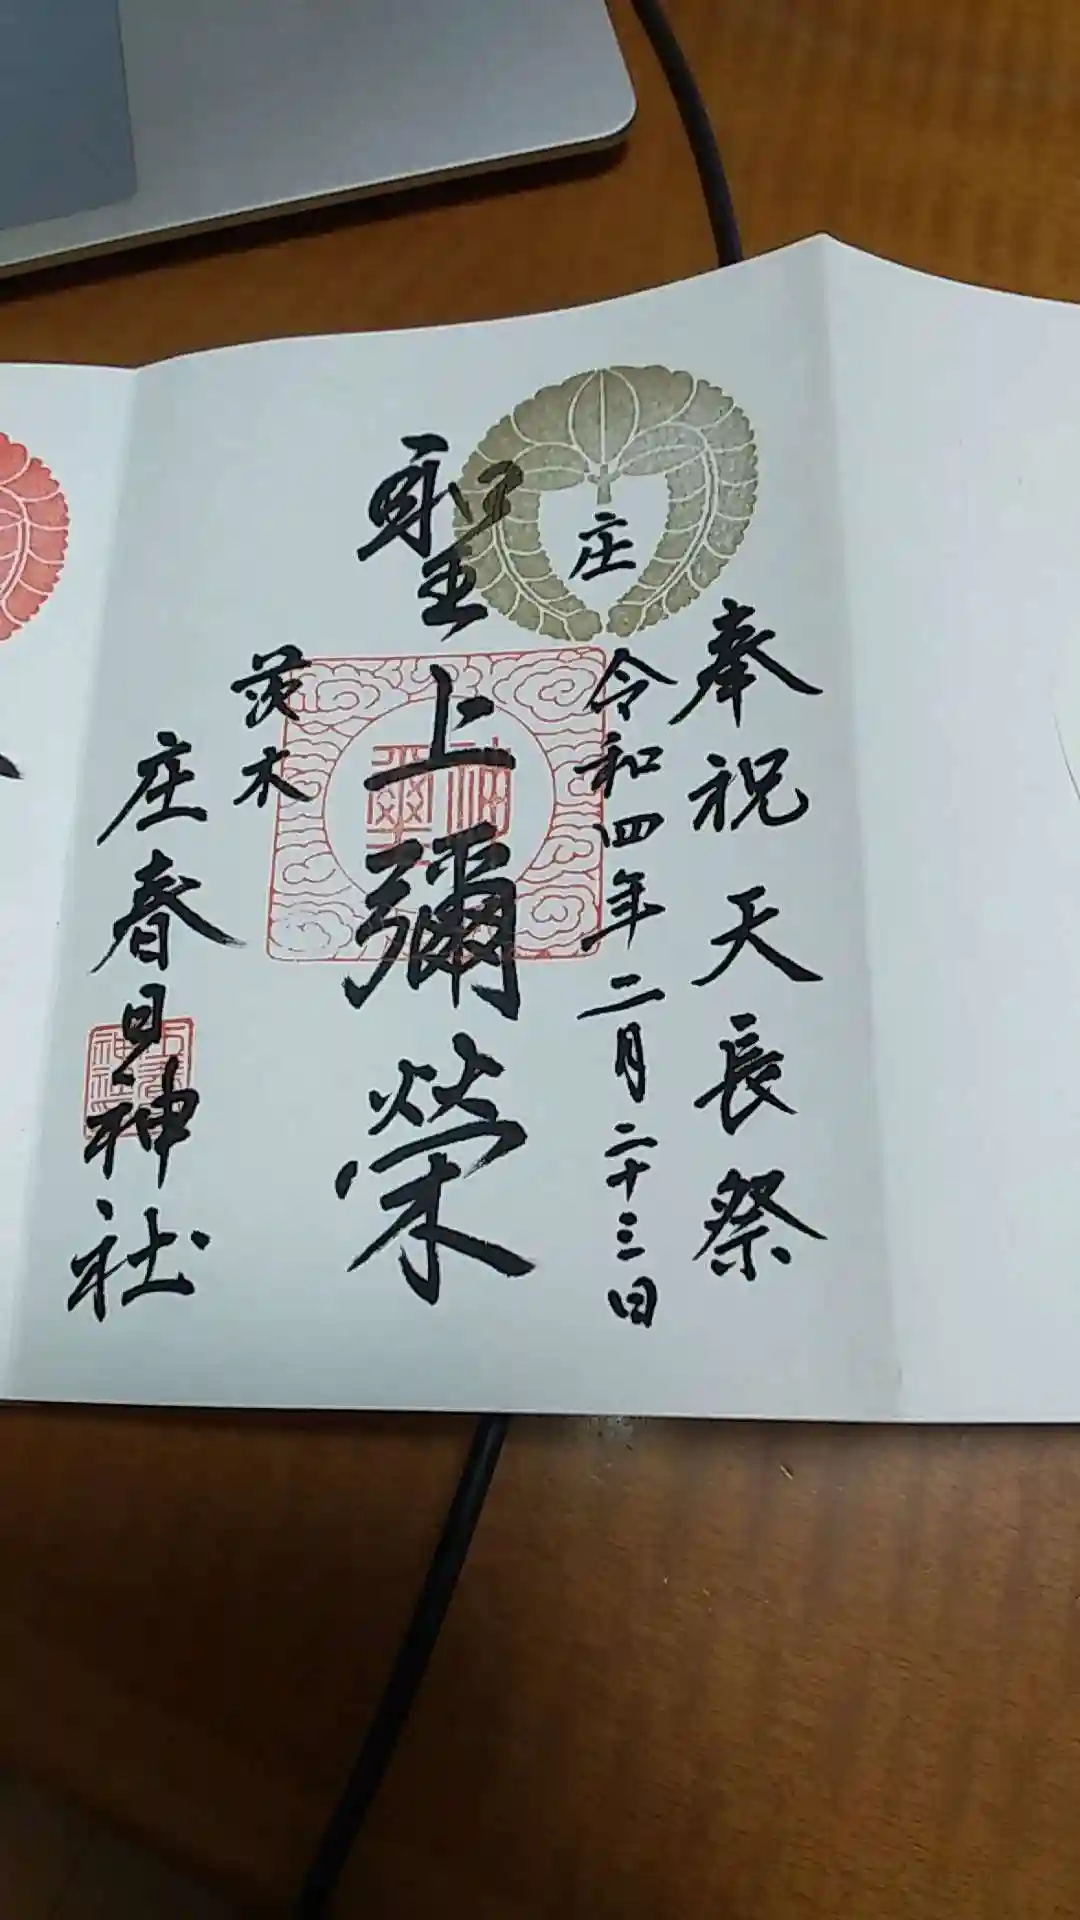 奉祝天長祭
令和四年二月二十三日
庄
聖上彌榮
茨木
庄春日神社